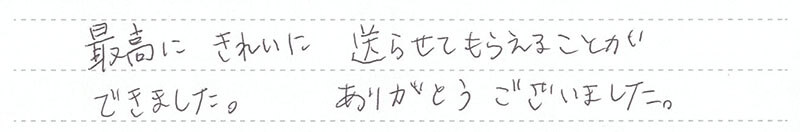 最高に きれいに 送らせてもらえることが
できました。 ありがとう ございました。